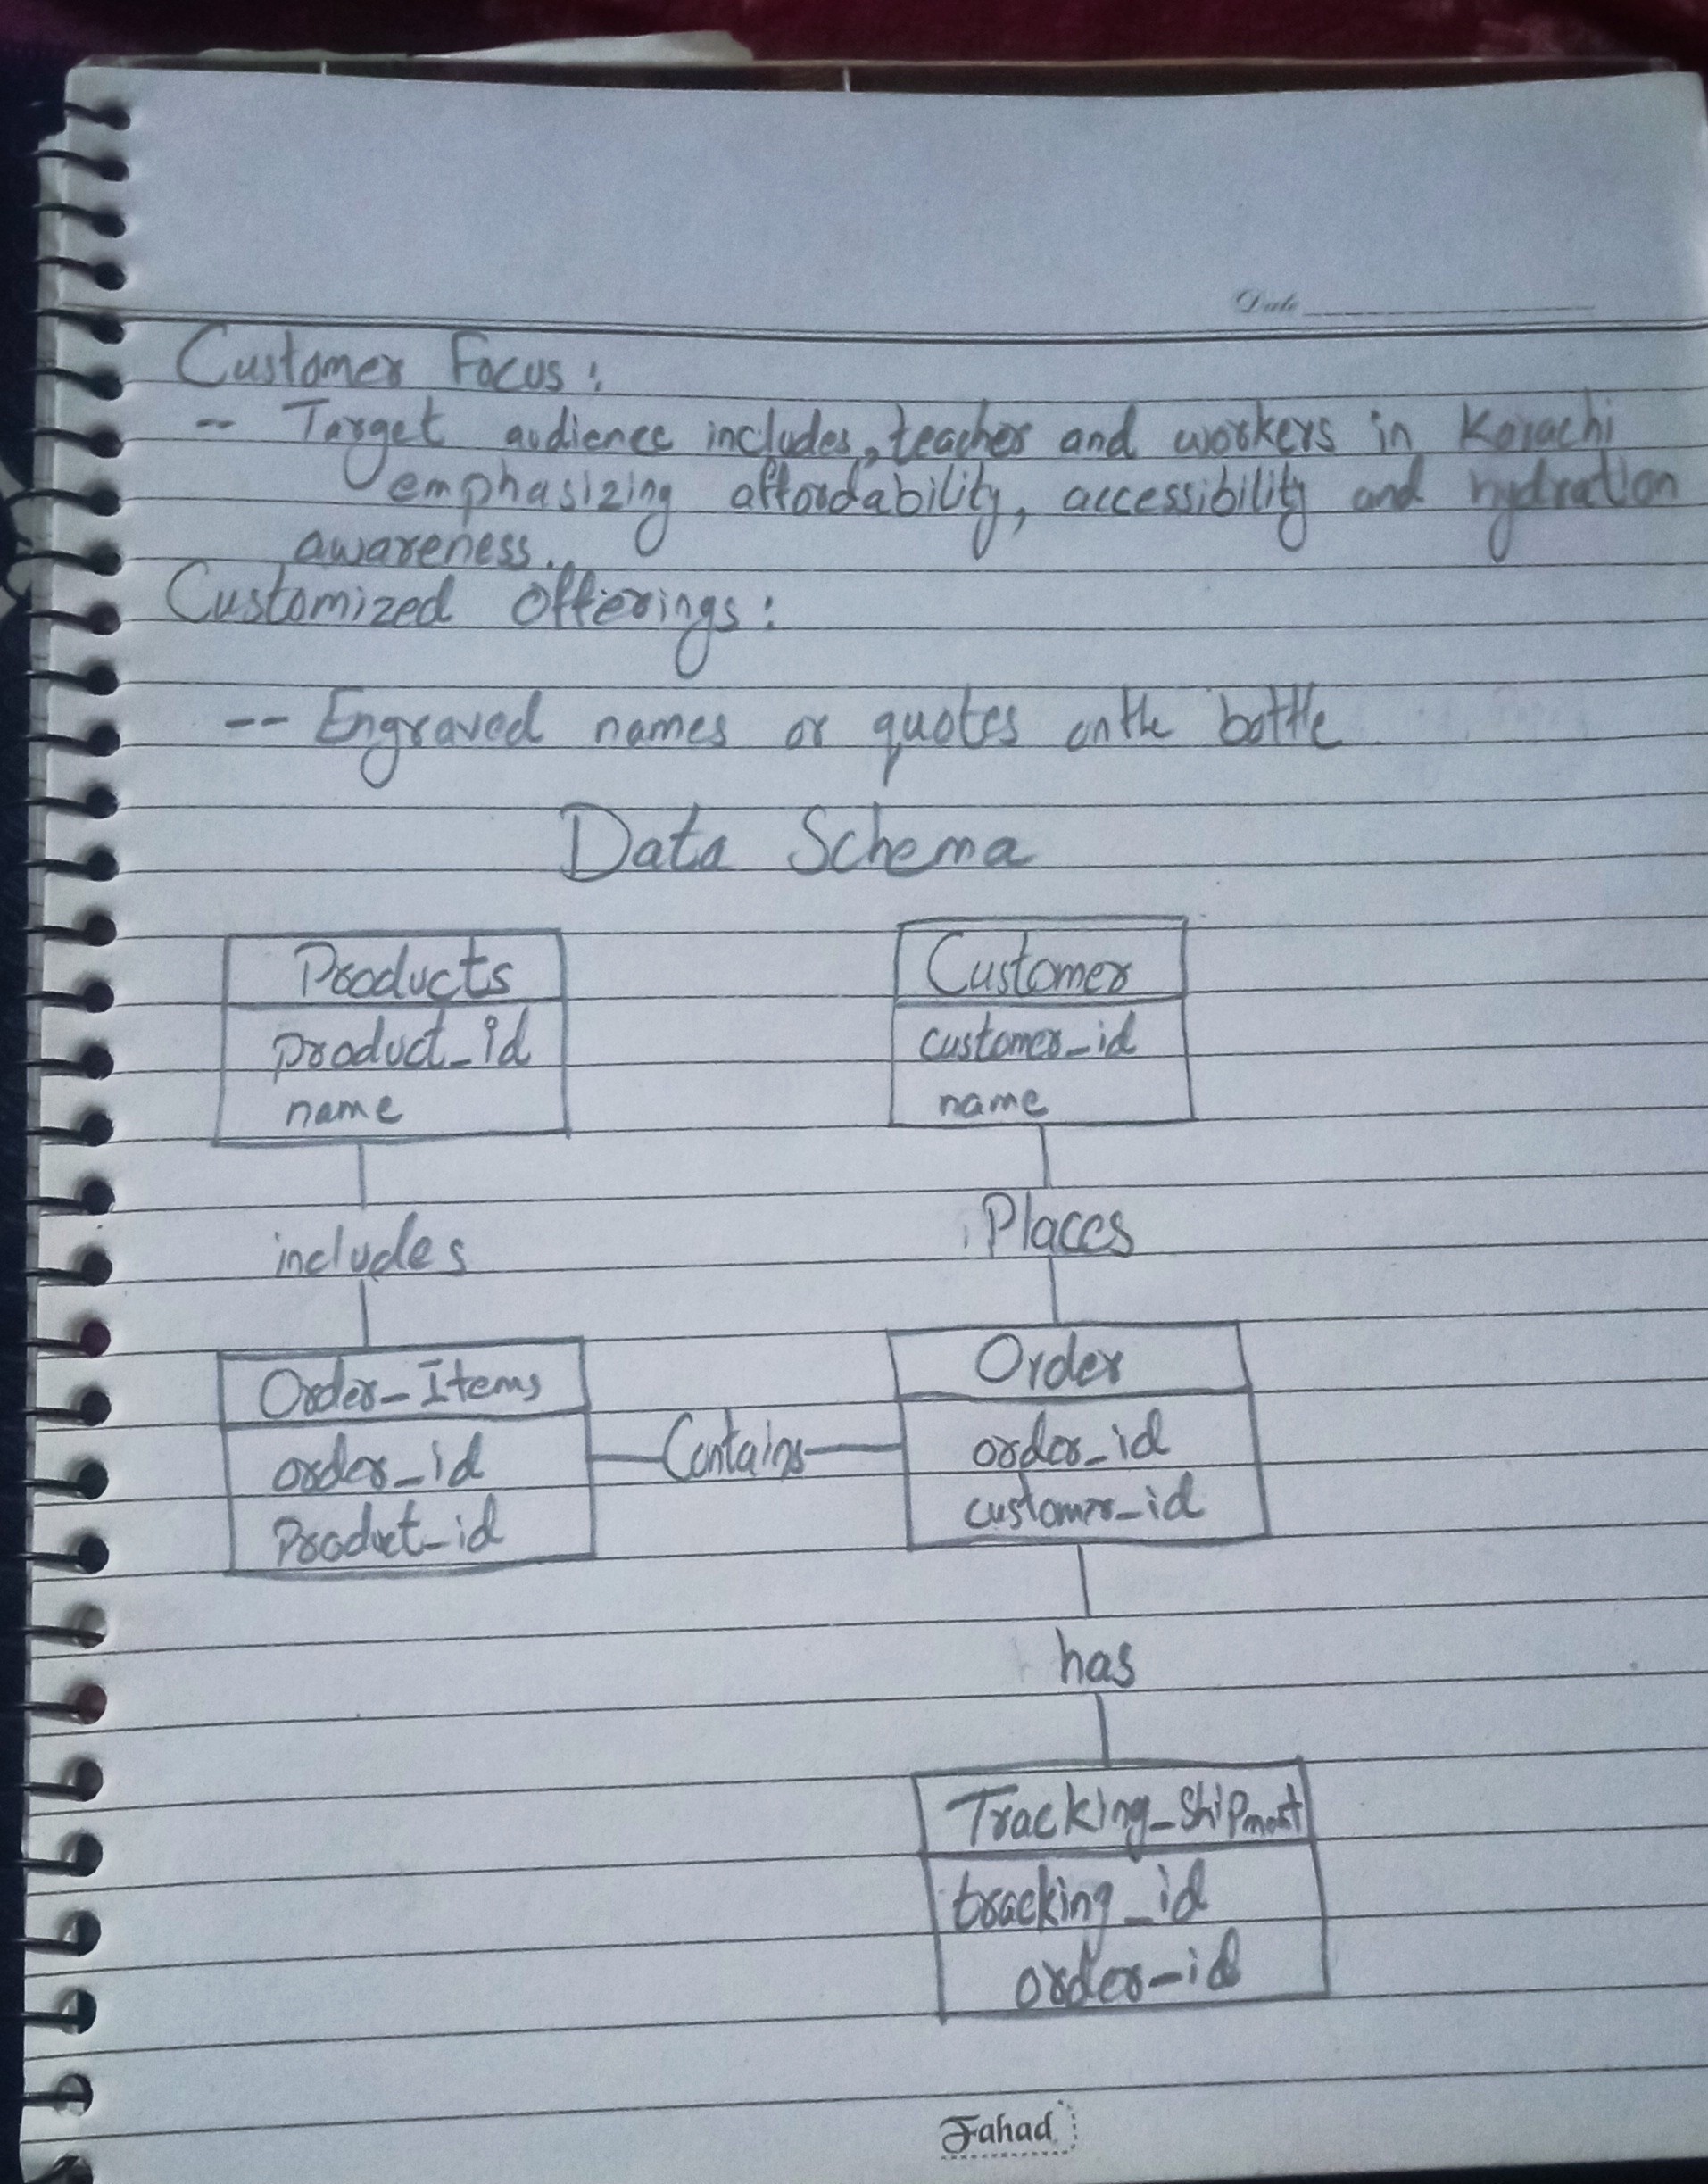 Date
Customer Focus :
-- Target audience includes, teacher and workers in Karachi
emphasizing affordability, accessibility and hydration
awareness.
Customized Offerings :
-- Engraved names or quotes on the bottle
Data Schema
Products
product_id
name
Customer
customer_id
name
includes
Places
Order_Items
order_id
Product_id
Contains
Order
order_id
customer_id
has
Tracking_Shipment
tracking_id
order_id
Fahad